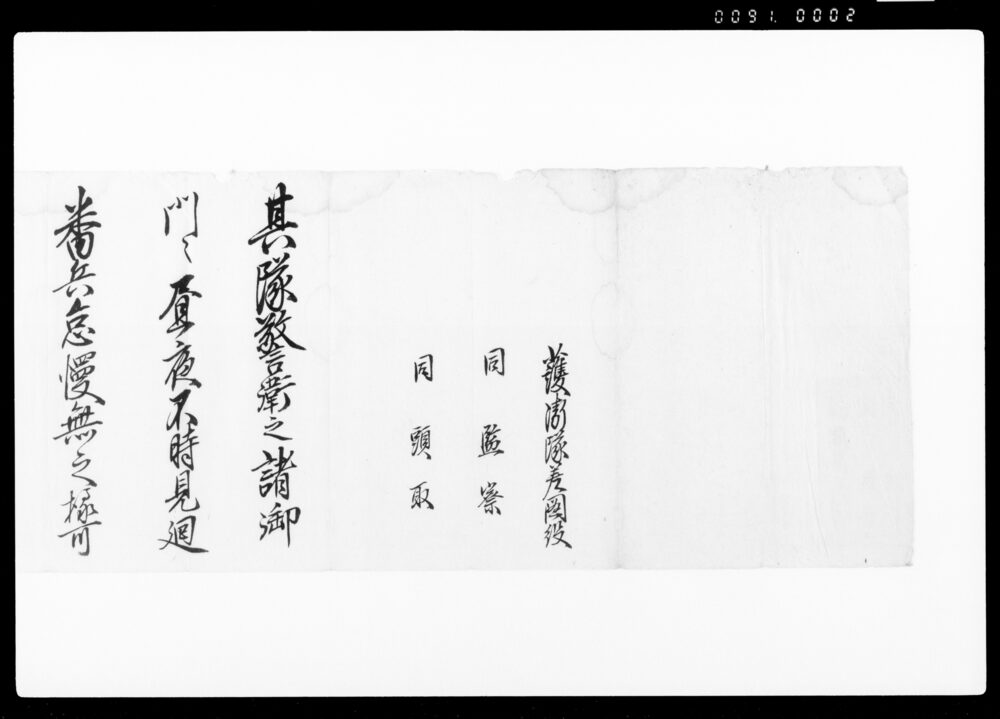 0091. 0002
護衛隊差図役
同監察
同頭取
其隊警衛之諸御
門〻昼夜不時見廻
番兵怠慢無之様可